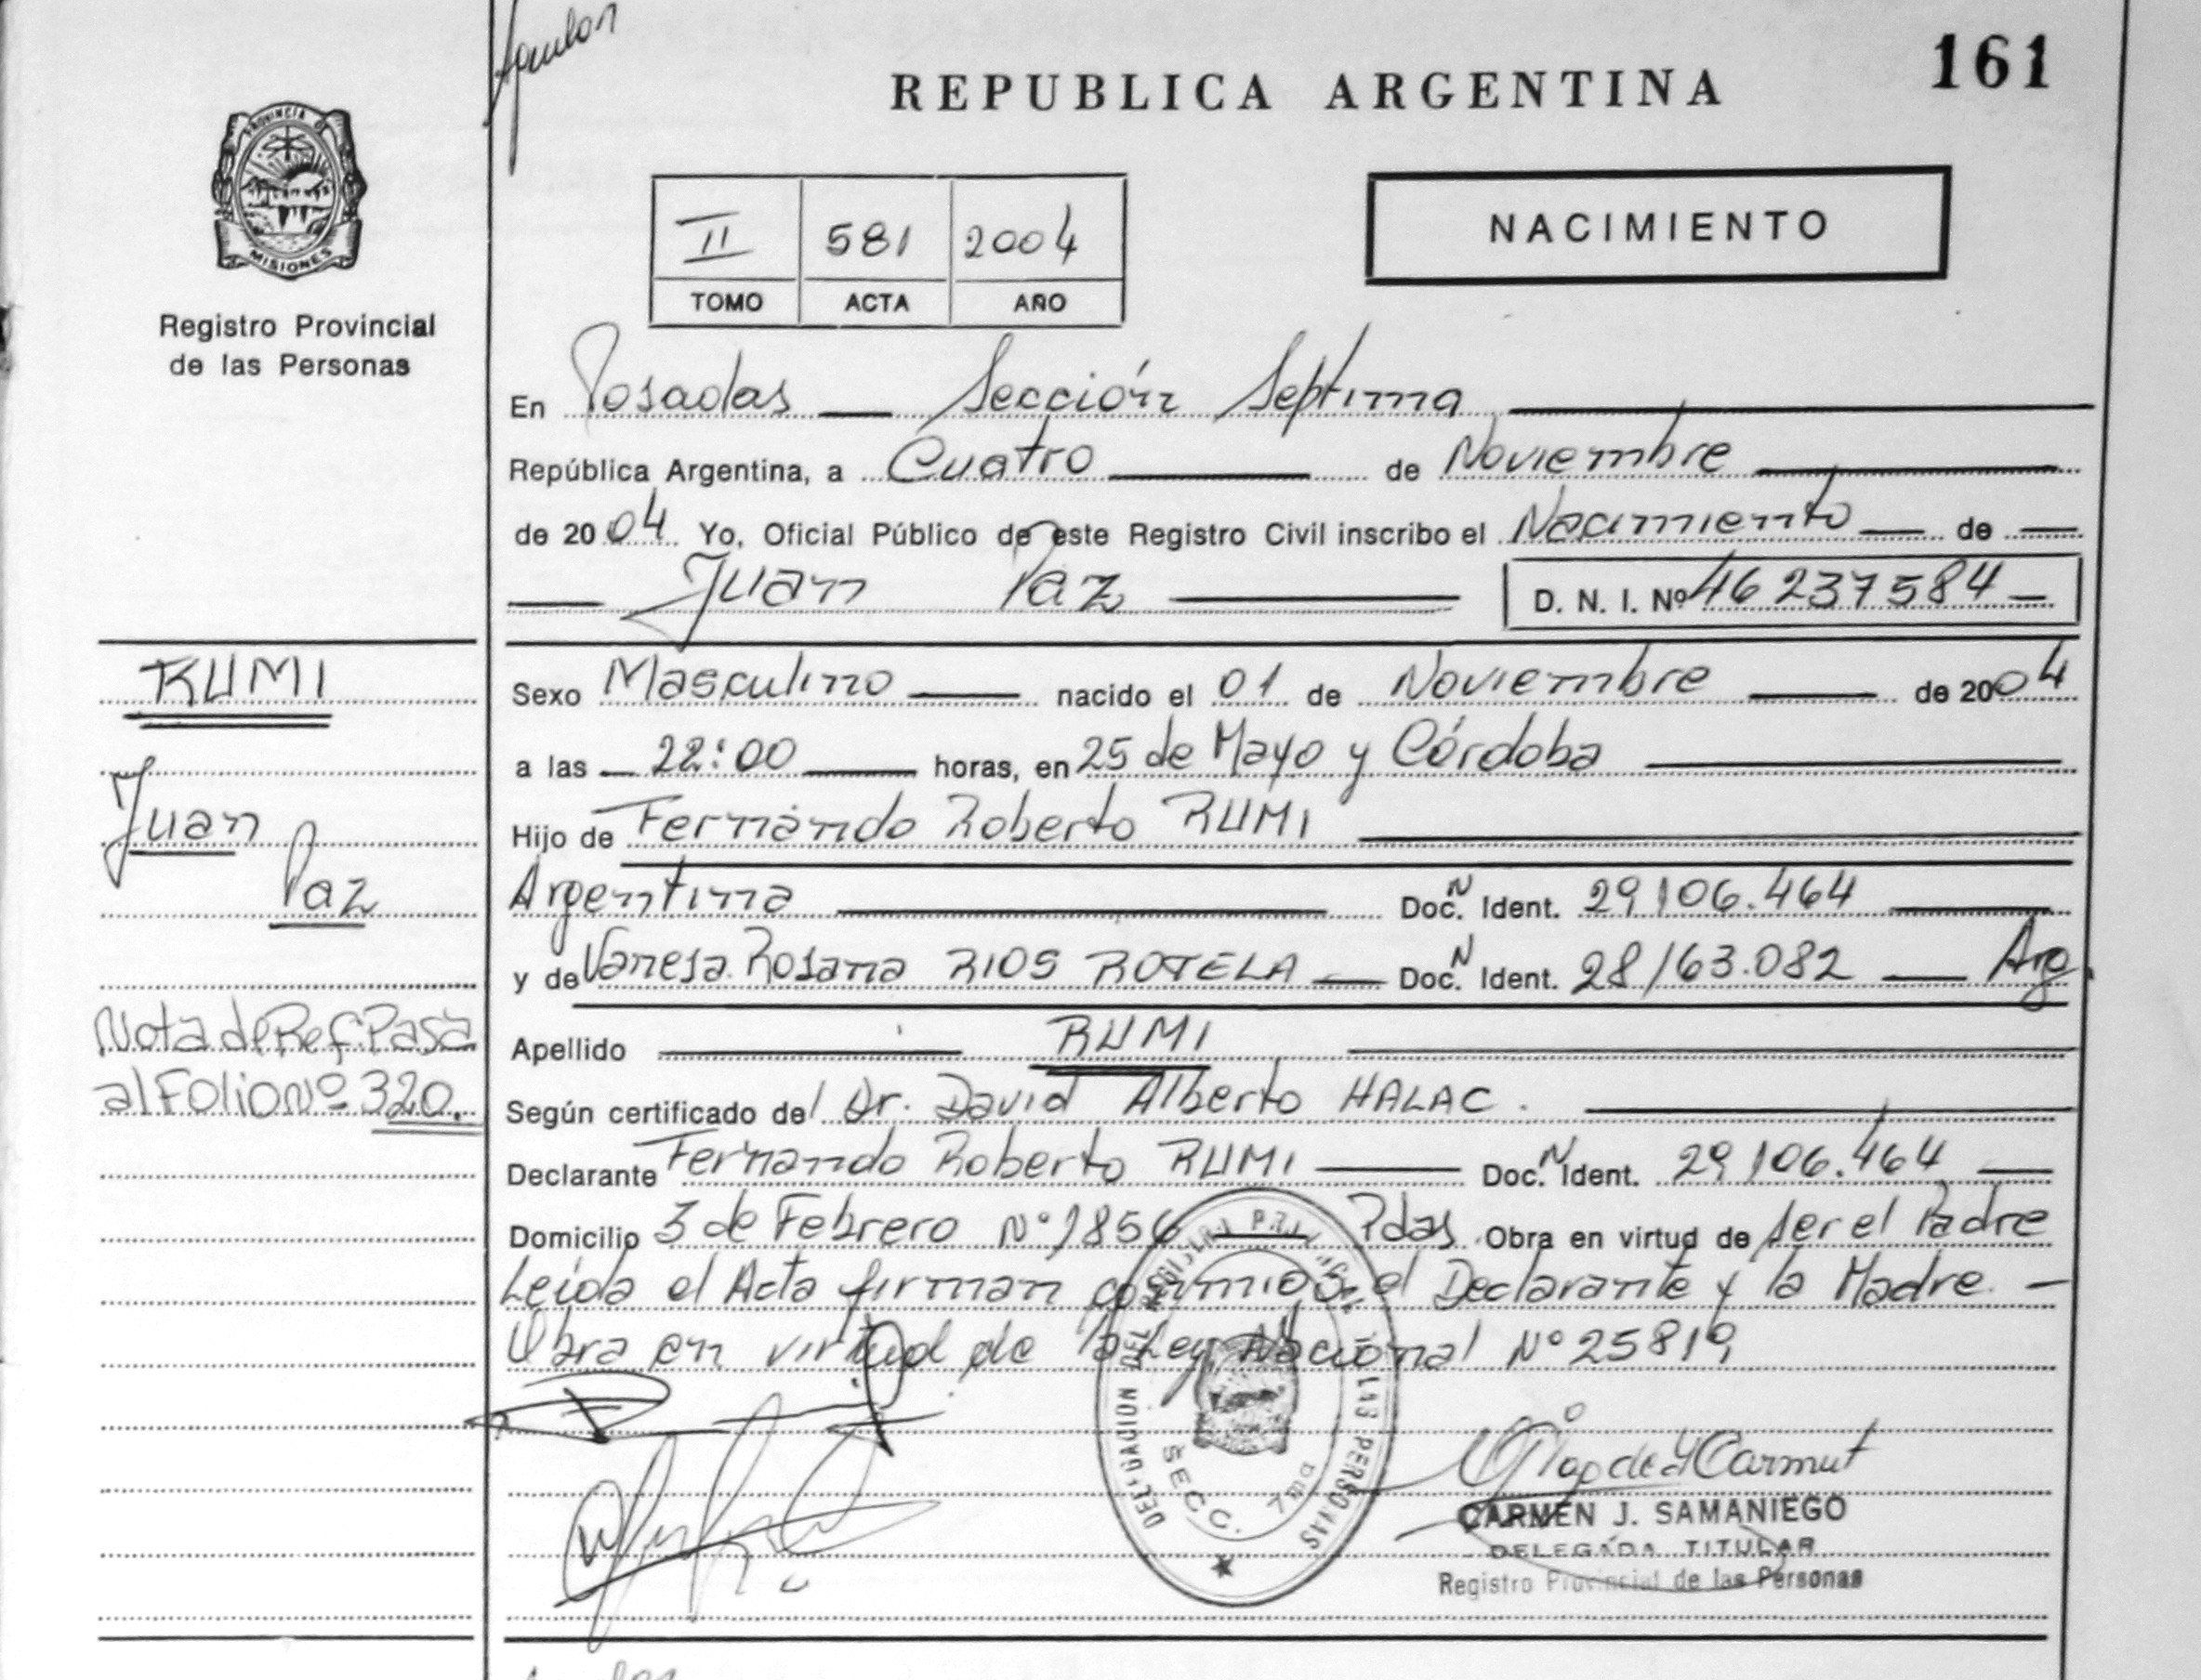 161
REPUBLICA ARGENTINA
PROVINCIA DE
MISIONES
Registro Provincial
de las Personas
II 581 2004
TOMO ACTA AÑO
NACIMIENTO
En Posadas — Sección Septima
República Argentina, a Cuatro de Noviembre
de 2004 Yo, Oficial Público de este Registro Civil inscribo el Nacimiento — de —
Juan Paz D. N. I. Nº 46 237584 —
RUMI
Juan
Paz
Nota de Ref. Pasa
al Folio Nº 320.
Sexo Masculino — nacido el 01 de Noviembre — de 2004
a las — 22:00 — horas, en 25 de Mayo y Córdoba
Hijo de Fernando Roberto RUMI
Argentina — Doc. N Ident. 29106.464 —
y de Vanesa Rosana RIOS ROTELA — Doc. N Ident. 28163.082 — Arg.
Apellido — RUMI
Según certificado del Dr. David Alberto HALAC.
Declarante Fernando Roberto RUMI — Doc. N Ident. 29106.464 —
Domicilio 3 de Febrero Nº 1856 — Pdas. Obra en virtud de ser el Padre
Leída el Acta firman conmigo el Declarante y la Madre. —
Obra en virtud de la Ley Nacional Nº 25819
DELEGACION DEL REGISTRO PROVINCIAL DE LAS PERSONAS
SECC. 7ma
CARMEN J. SAMANIEGO
DELEGADA TITULAR
Registro Provincial de las Personas